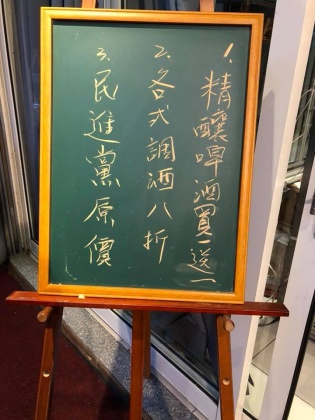 1. 精釀啤酒買一送一
2. 各式調酒八折
3. 民進黨原價